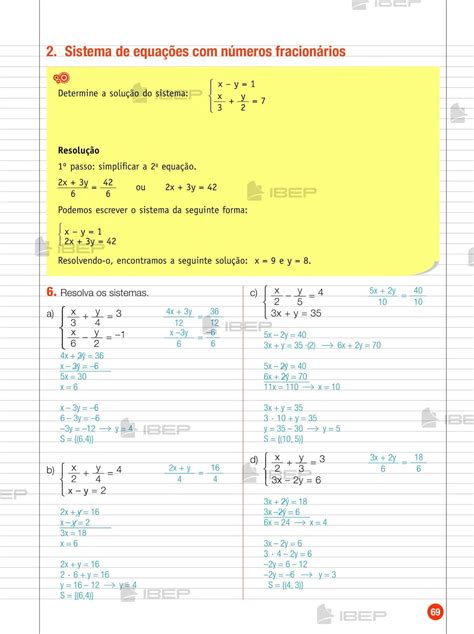 IBEP
2. Sistema de equações com números fracionários
Determine a solução do sistema: { x – y = 1
x/3 + y/2 = 7
Resolução
1º passo: simplificar a 2ª equação.
2x + 3y/6 = 42/6 ou 2x + 3y = 42
IBEP
Podemos escrever o sistema da seguinte forma:
{ x – y = 1
2x + 3y = 42
Resolvendo-o, encontramos a seguinte solução: x = 9 e y = 8.
6. Resolva os sistemas.
a) { x/3 + y/4 = 3 4x + 3y/12 = 36/12
x/6 – y/2 = –1 x –3y/6 = –6/6
4x + 3y = 36
x – 3y = –6
5x = 30
x = 6
x – 3y = –6
6 – 3y = –6
–3y = –12 → y = 4
S = {(6,4)}
b) { x/2 + y/4 = 4 2x + y/4 = 16/4
x – y = 2
2x + y = 16
x – y = 2
3x = 18
x = 6
2x + y = 16
2 · 6 + y = 16
y = 16 – 12 → y = 4
S = {(6,4)}
c) { x/2 – y/5 = 4 5x + 2y/10 = 40/10
3x + y = 35
5x – 2y = 40
3x + y = 35 ·(2) → 6x + 2y = 70
5x – 2y = 40
6x + 2y = 70
11x = 110 → x = 10
3x + y = 35
3 · 10 + y = 35
y = 35 – 30 → y = 5
S = {(10, 5)}
d) { x/2 + y/3 = 3 3x + 2y/6 = 18/6
3x – 2y = 6
3x + 2y = 18
3x –2y = 6
6x = 24 → x = 4
3x – 2y = 6
3 · 4 – 2y = 6
–2y = 6 – 12
–2y = –6 → y = 3
S = {(4, 3)}
IBEP
IBEP
IBEP
IBEP
IBEP
IBEP
69